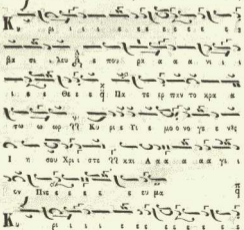 Κυ ρι ι ι ε ε ε ε ε ε
βα σι λευ ε που ρα α α α νι ι
ι ι ε Θε ε ε Πα τε ερ παν το κρα α
τω ω ωρ ?? Κυ ρι ε Υι ε μο ο νο γε ε νες
Ι η σου Χρι ι στε ?? και Α α α α α γι ι
ον Πνε ε ε ε ε ευ μα
Κυ ρι ι ι ι ε ε ε ε ε